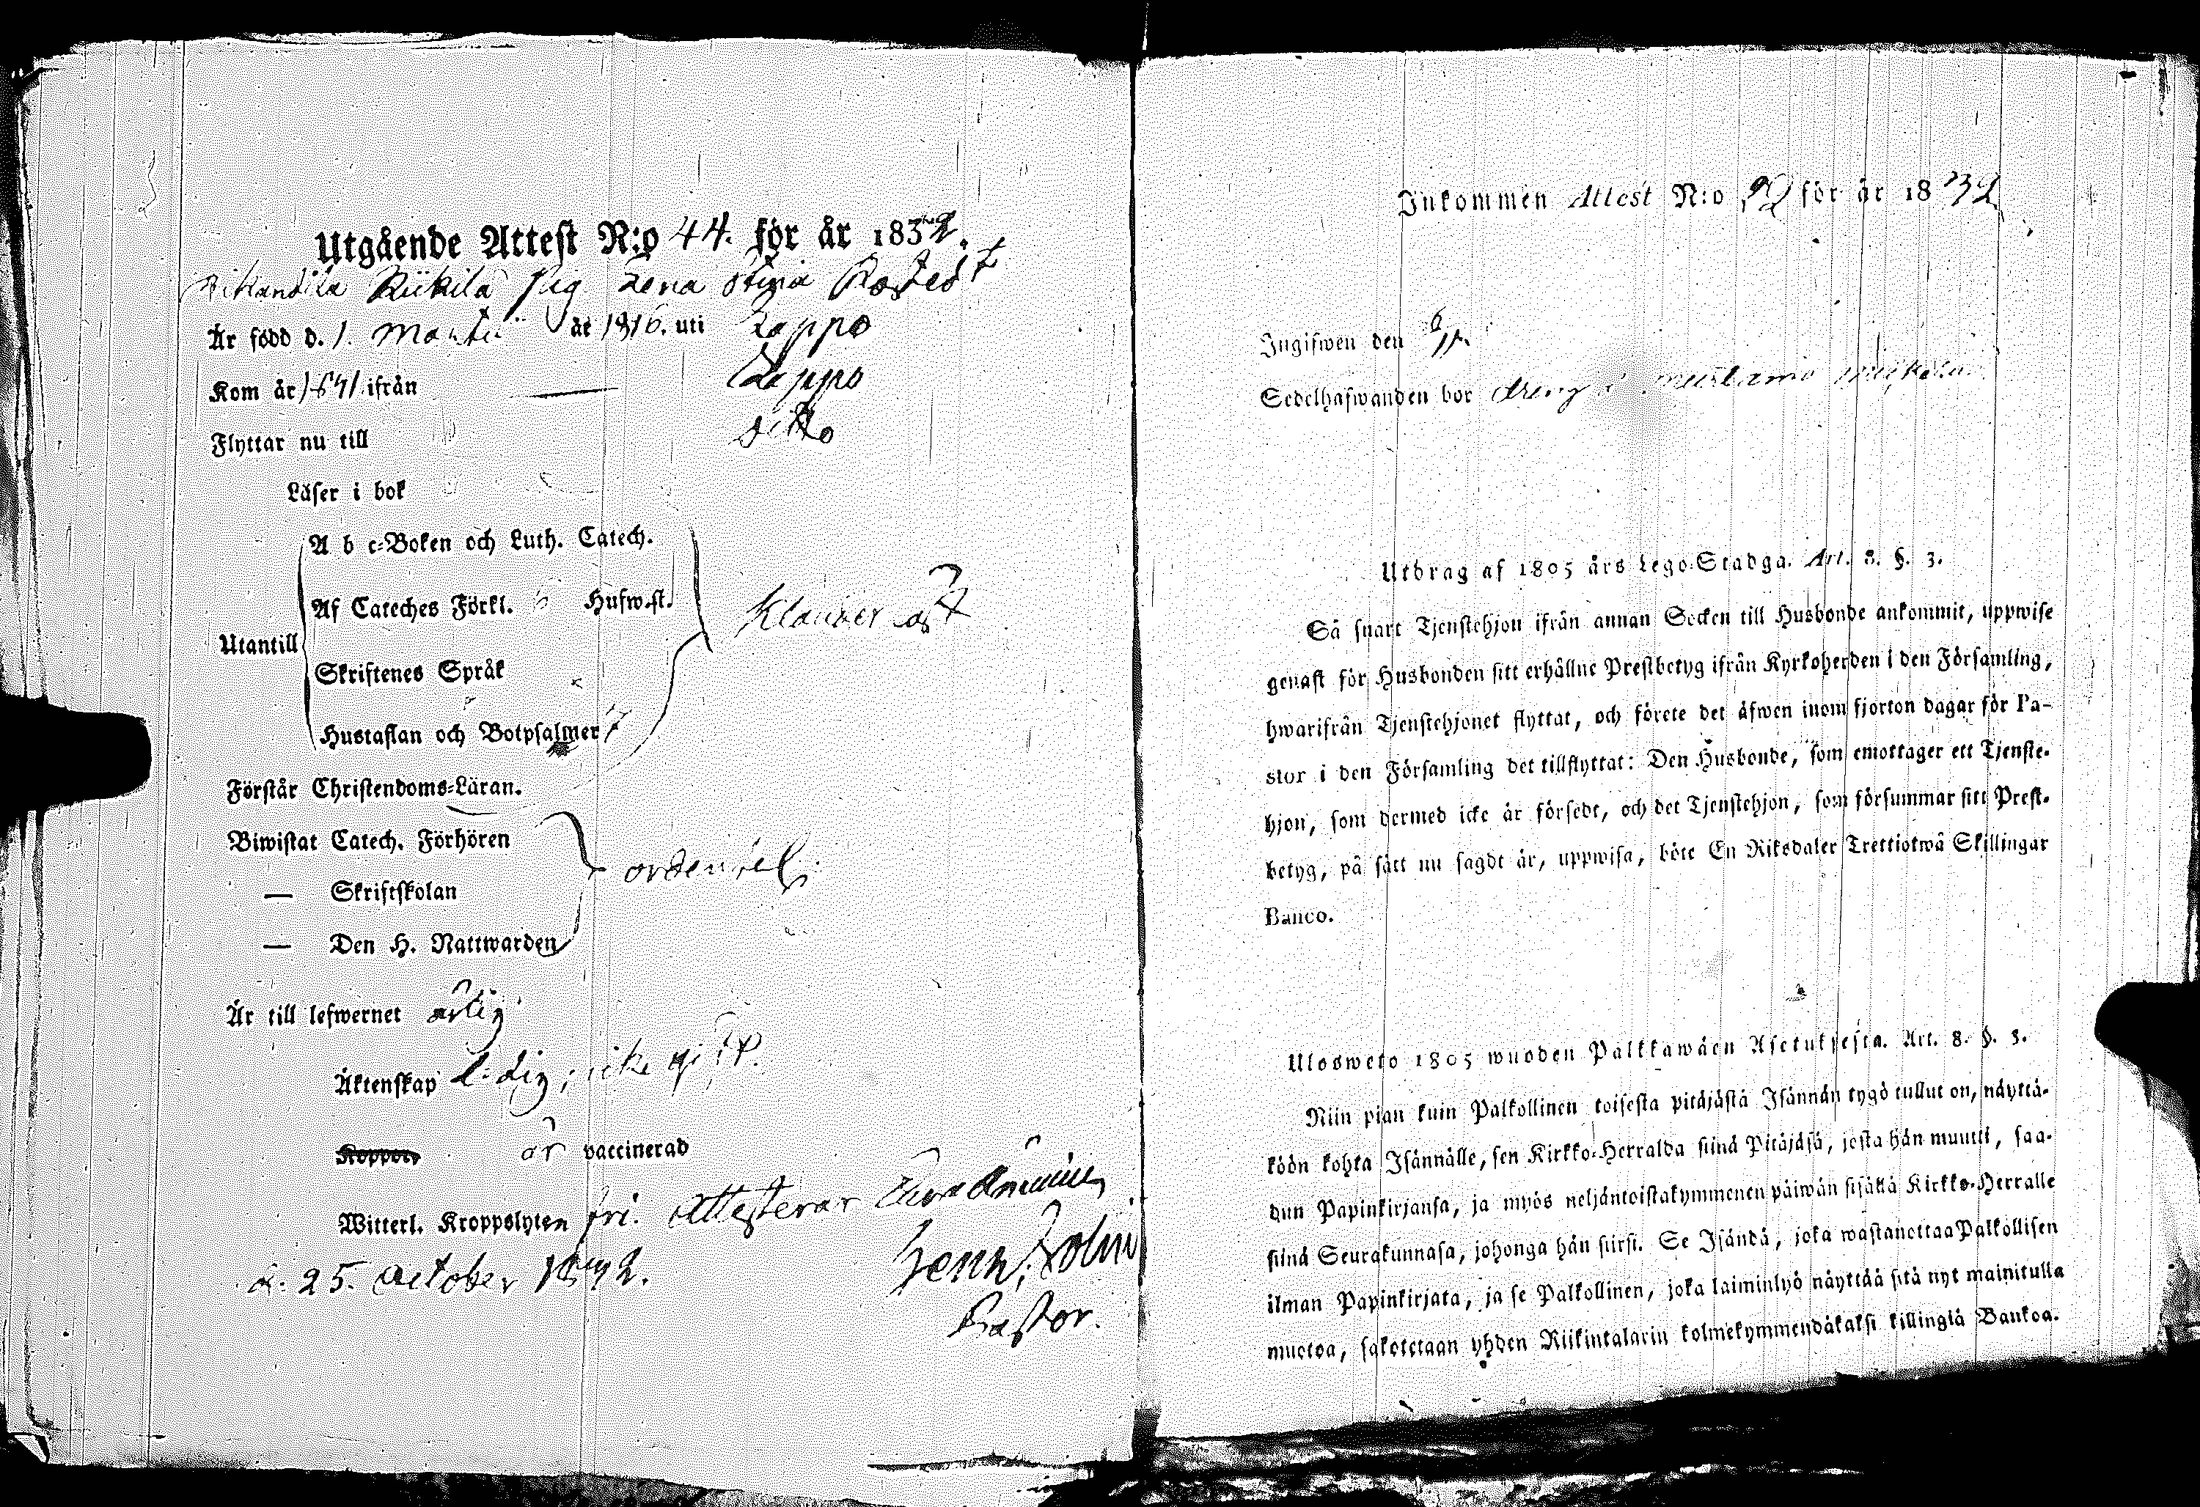 Utgående Attest N:o 44. för år 1832.
Riikilä Pig Lena Stina
Är född d. 1. år 1816. uti Lappo
Kom år 1841 ifrån Lappo
Flyttar nu till ditto
Läser i bok
A b c-Boken och Luth. Catech.
Af Cateches Förkl. Hufw.st.
Utantill
Skriftenes Språk
Hustaflan och Botpsalmer
Förstår Christendoms-Läran.
Biwistat Catech. Förhören
— Skriftskolan
— Den H. Nattwarden
Är till lefwernet ärlig
Äktenskap ledig, icke
Koppor är vaccinerad
Witterl. Kroppslyten fri. Attesterar
d. 25. October 1842.
Pastor.
Inkommen Attest N:o för år 1832
Ingifwen den
Sedelhafwanden bor
Utdrag af 1805 års Lego-Stadga. Art. 8. §. 3.
Så snart Tjenstehjon ifrån annan Socken till Husbonde ankommit, uppwise
genast för Husbonden sitt erhållne Prestbetyg ifrån Kyrkoherden i den Församling,
hwarifrån Tjenstehjonet flyttat, och förete det äfwen inom fjorton dagar för Pa-
stor i den Församling det tillflyttat: Den Husbonde, som emottager ett Tjenste-
hjon, som dermed icke är försedt, och det Tjenstehjon, som försummar sitt Prest-
betyg, på sätt nu sagdt är, uppwisa, böte En Riksdaler Trettiotwå Skillingar
Banco.
Ulosweto 1805 wuoden Palkkawäen Asetuksesta. Art. 8. §. 3.
Niin pian kuin Palkollinen toisesta pitäjästä Isännän tygö tullut on, näyttä-
köön kohta Isännälle, sen Kirkko-Herralda siinä Pitäjäsä, josta hän muutti, saa-
dun Papinkirjansa, ja myös neljäntoistakymmenen päiwän sisällä Kirkko-Herralle
siinä Seurakunnasa, johonga hän siirsi. Se Isändä, joka wastanottaa Palkollisen
ilman Papinkirjata, ja se Palkollinen, joka laiminlyö näyttää sitä nyt mainitulla
muotoa, sakotetaan yhden Riikintalarin kolmekymmendäkaksi killingiä Bankoa.